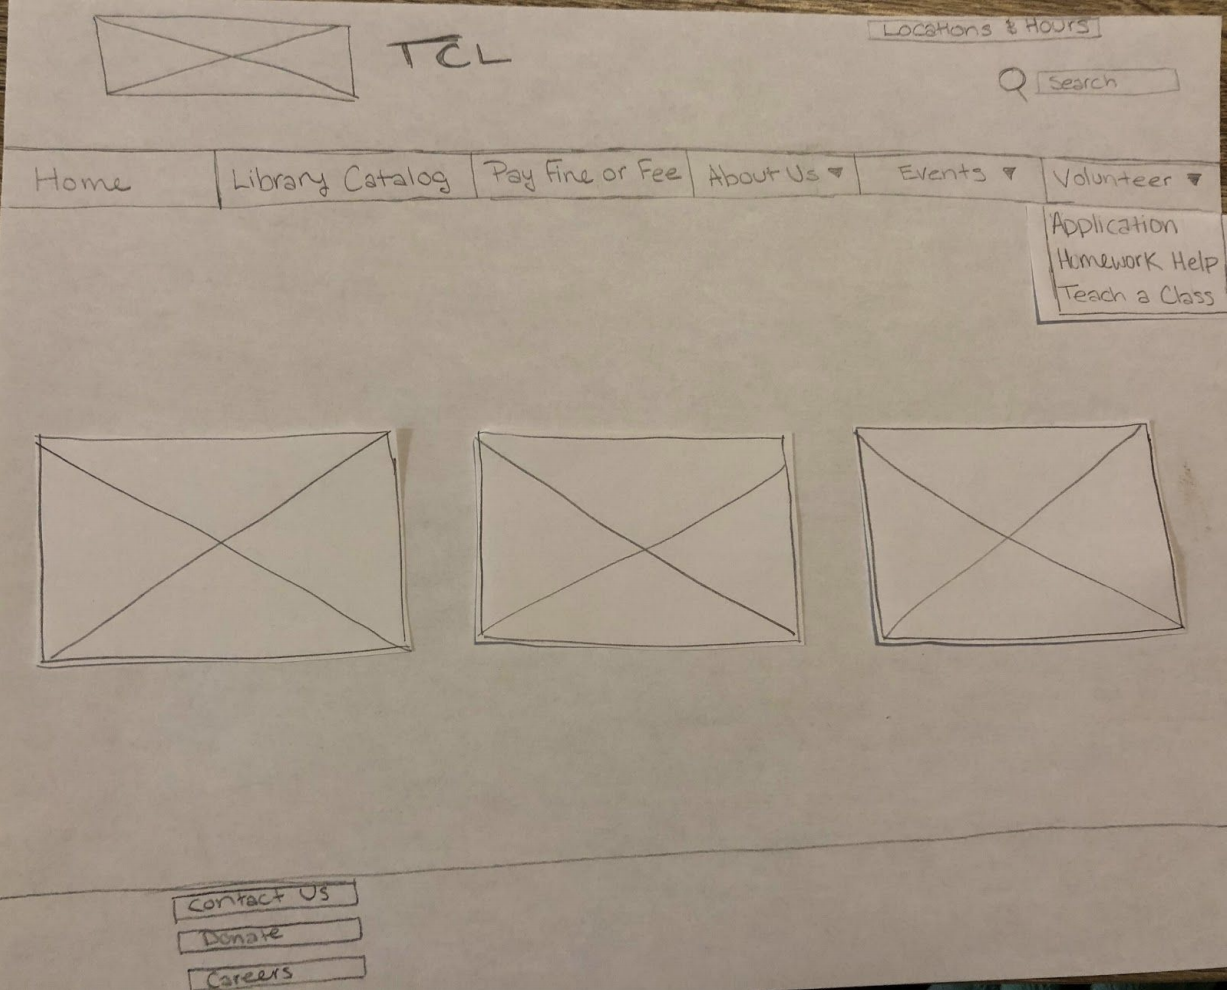 TCL
Locations & Hours
Search
Home
Library Catalog
Pay Fine or Fee
About Us ▼
Events ▼
Volunteer ▼
Application
Homework Help
Teach a Class
Contact Us
Donate
Careers